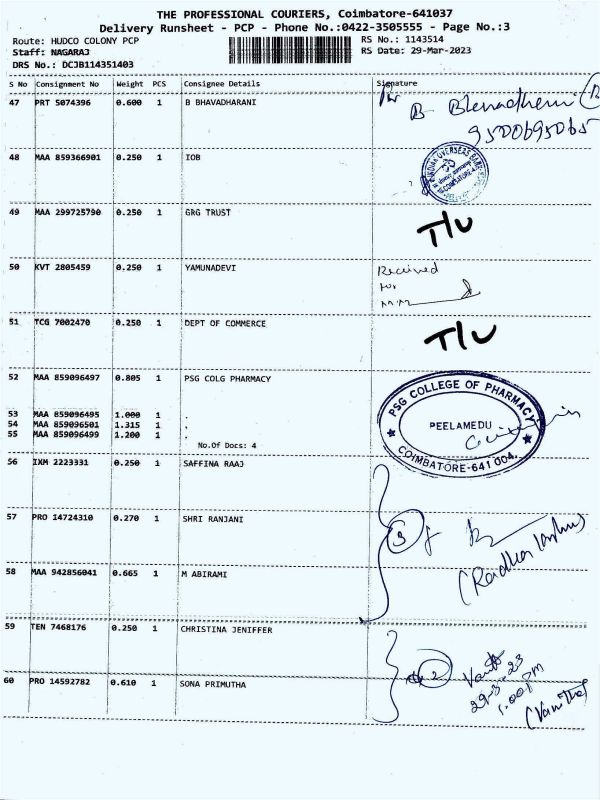 THE PROFESSIONAL COURIERS, Coimbatore-641037
Delivery Runsheet - PCP - Phone No.:0422-3505555 - Page No.:3
Route: HUDCO COLONY PCP RS No.: 1143514
Staff: NAGARAJ RS Date: 29-Mar-2023
DRS No.: DCJB114351403
S No Consignment No Weight PCS Consignee Details Signature
47 PRT 5074396 0.600 1 B BHAVADHARANI
B-
9500695065
48 MAA 859366901 0.250 1 IOB
INDIAN OVERSEAS BANK
49 MAA 299725790 0.250 1 GRG TRUST T/U
50 KVT 2805459 0.250 1 YAMUNADEVI Received
for
51 TCG 7002470 0.250 1 DEPT OF COMMERCE T/U
52 MAA 859096497 0.805 1 PSG COLG PHARMACY
PSG COLLEGE OF PHARMACY
PEELAMEDU
COIMBATORE-641 004.
53 MAA 859096495 1.000 1 .
54 MAA 859096501 1.315 1 .
55 MAA 859096499 1.200 1 .
No.Of Docs: 4
56 IXM 2223331 0.250 1 SAFFINA RAAJ
57 PRO 14724310 0.270 1 SHRI RANJANI
3
58 MAA 942856041 0.665 1 M ABIRAMI
59 TEN 7468176 0.250 1 CHRISTINA JENIFFER
2
29-3-23
1.00PM
60 PRO 14592782 0.610 1 SONA PRIMUTHA
(Vanitha)